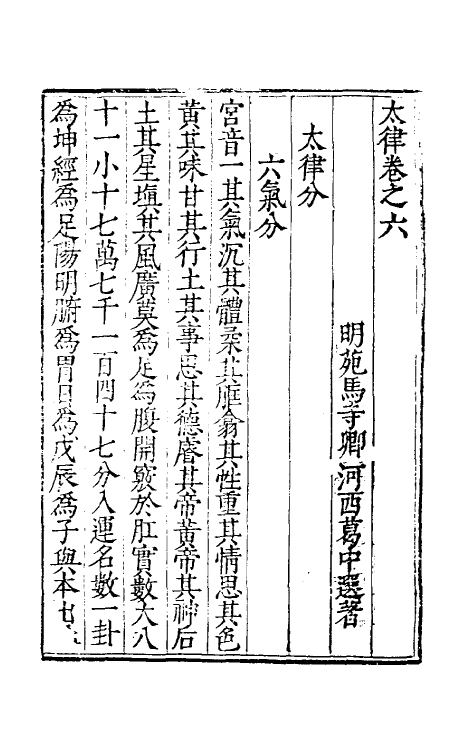 太律卷之六
明苑馬寺卿河西葛中選著
太律分
六氣分
宮音一其氣沉其體柔其腔翕其性重其情思其色
黃其味甘其行土其事思其德睿其帝黃帝其神后
土其星塡其風廣莫為足為腹開竅於肛實數大八
十一小十七萬七千一百四十七分入運名數一卦
為坤經為足陽明腑為胃日為戊辰為子與本七